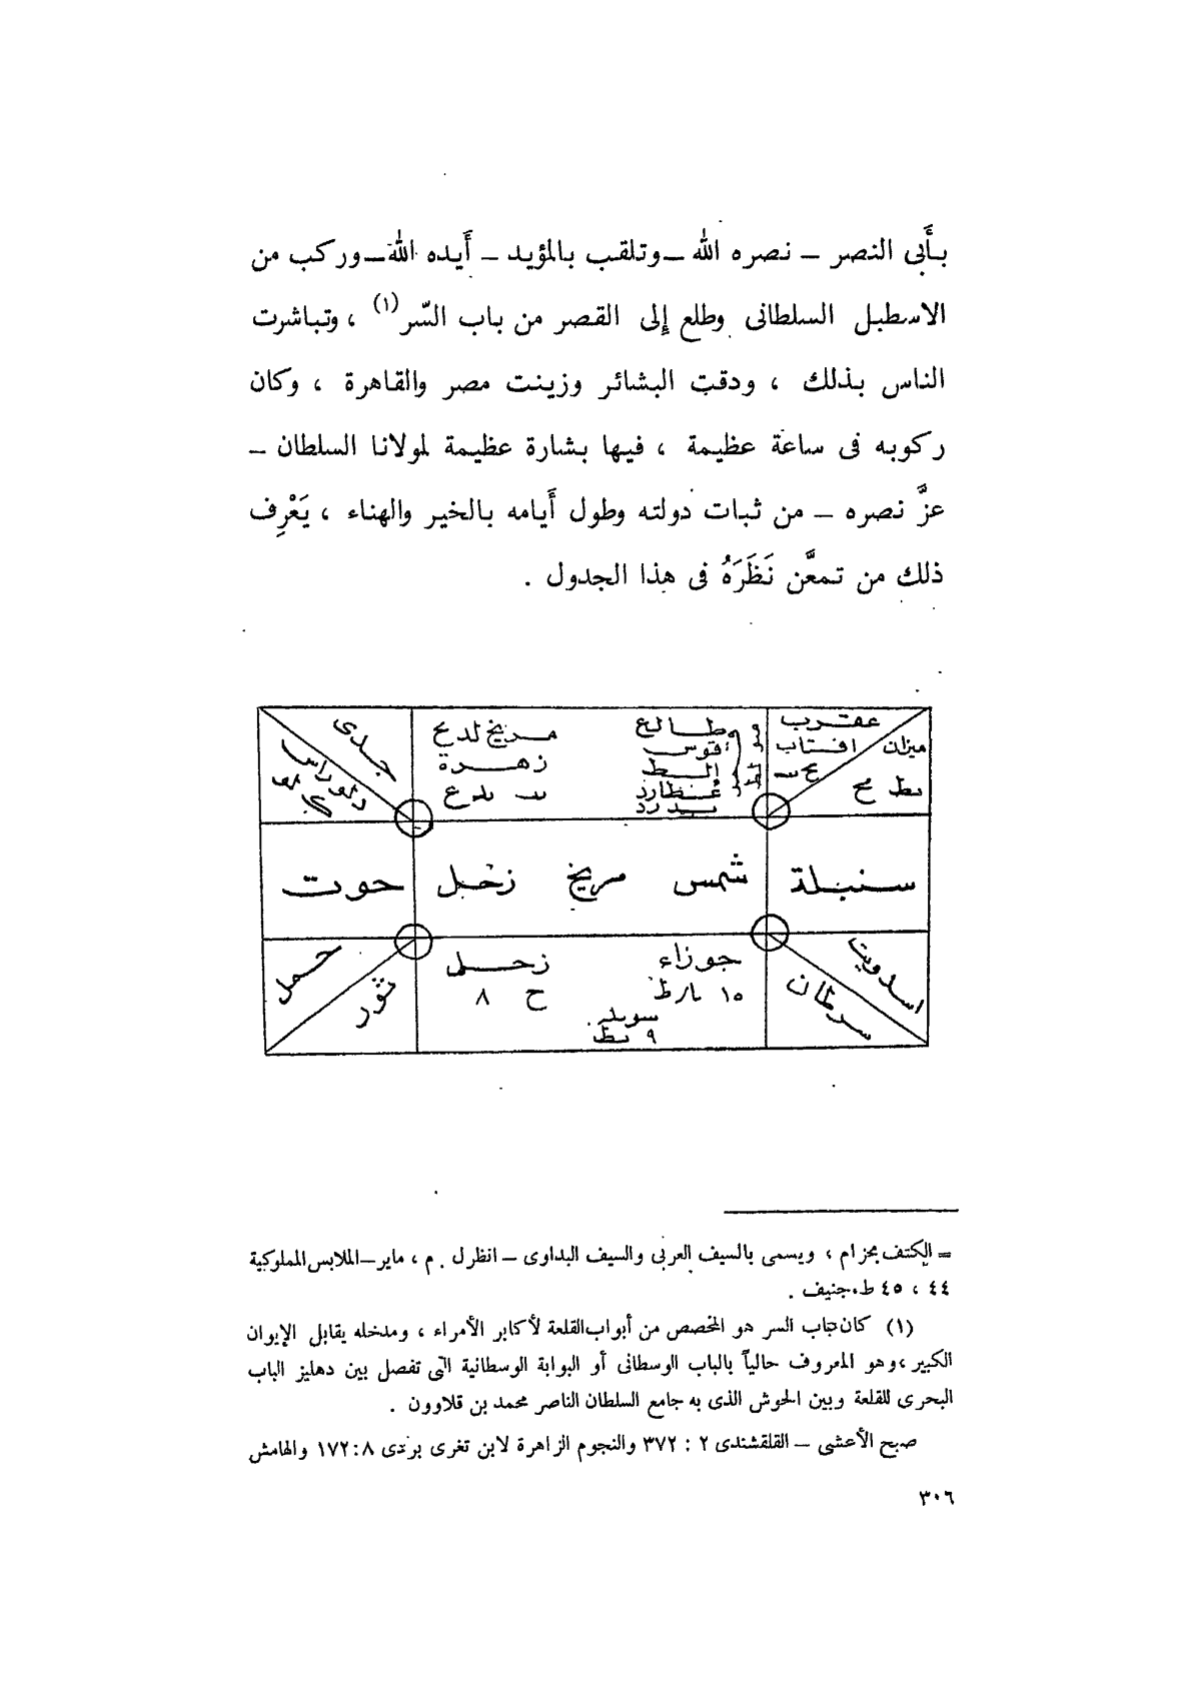 بأَبى النصر – نصره الله – وتلقب بالمؤيد – أَيده الله – وركب من
الاسطبل السلطانى وطلع إلى القصر من باب السّر(١) ، وتباشرت
الناس بذلك ، ودقت البشائر وزينت مصر والقاهرة ، وكان
ركوبه فى ساعة عظيمة ، فيها بشارة عظيمة لمولانا السلطان –
عزَّ نصره – من ثبات دولته وطول أَيامه بالخير والهناء ، يَعْرِف
ذلك من تمعَّن نَظَرَهُ فى هذا الجدول .
عقرب
ميزان افتاب
طالع
قوس
عطارد
مريخ
زهرة
جدى
سنبلة
شمس مريخ زحل
حوت
جوزاء
١٥
زحل
ح ٨
٩
سرطان
حمل
ثور
= الكتف بحزام ، ويسمى بالسيف العربى والسيف البداوى – انظر ل . م ، ماير – الملابس المملوكية
٤٤ ، ٤٥ ط. جنيف .
(١) كان باب السر هو المخصص من أبواب القلعة لأكابر الأمراء ، ومدخله يقابل الإيوان
الكبير ، وهو المعروف حالياً بالباب الوسطانى أو البوابة الوسطانية التى تفصل بين دهليز الباب
البحرى للقلعة وبين الحوش الذى به جامع السلطان الناصر محمد بن قلاوون .
صبح الأعشى – القلقشندى ٢ : ٣٧٢ والنجوم الزاهرة لابن تغرى بردى ٨ : ١٧٢ والهامش
٣٠٦